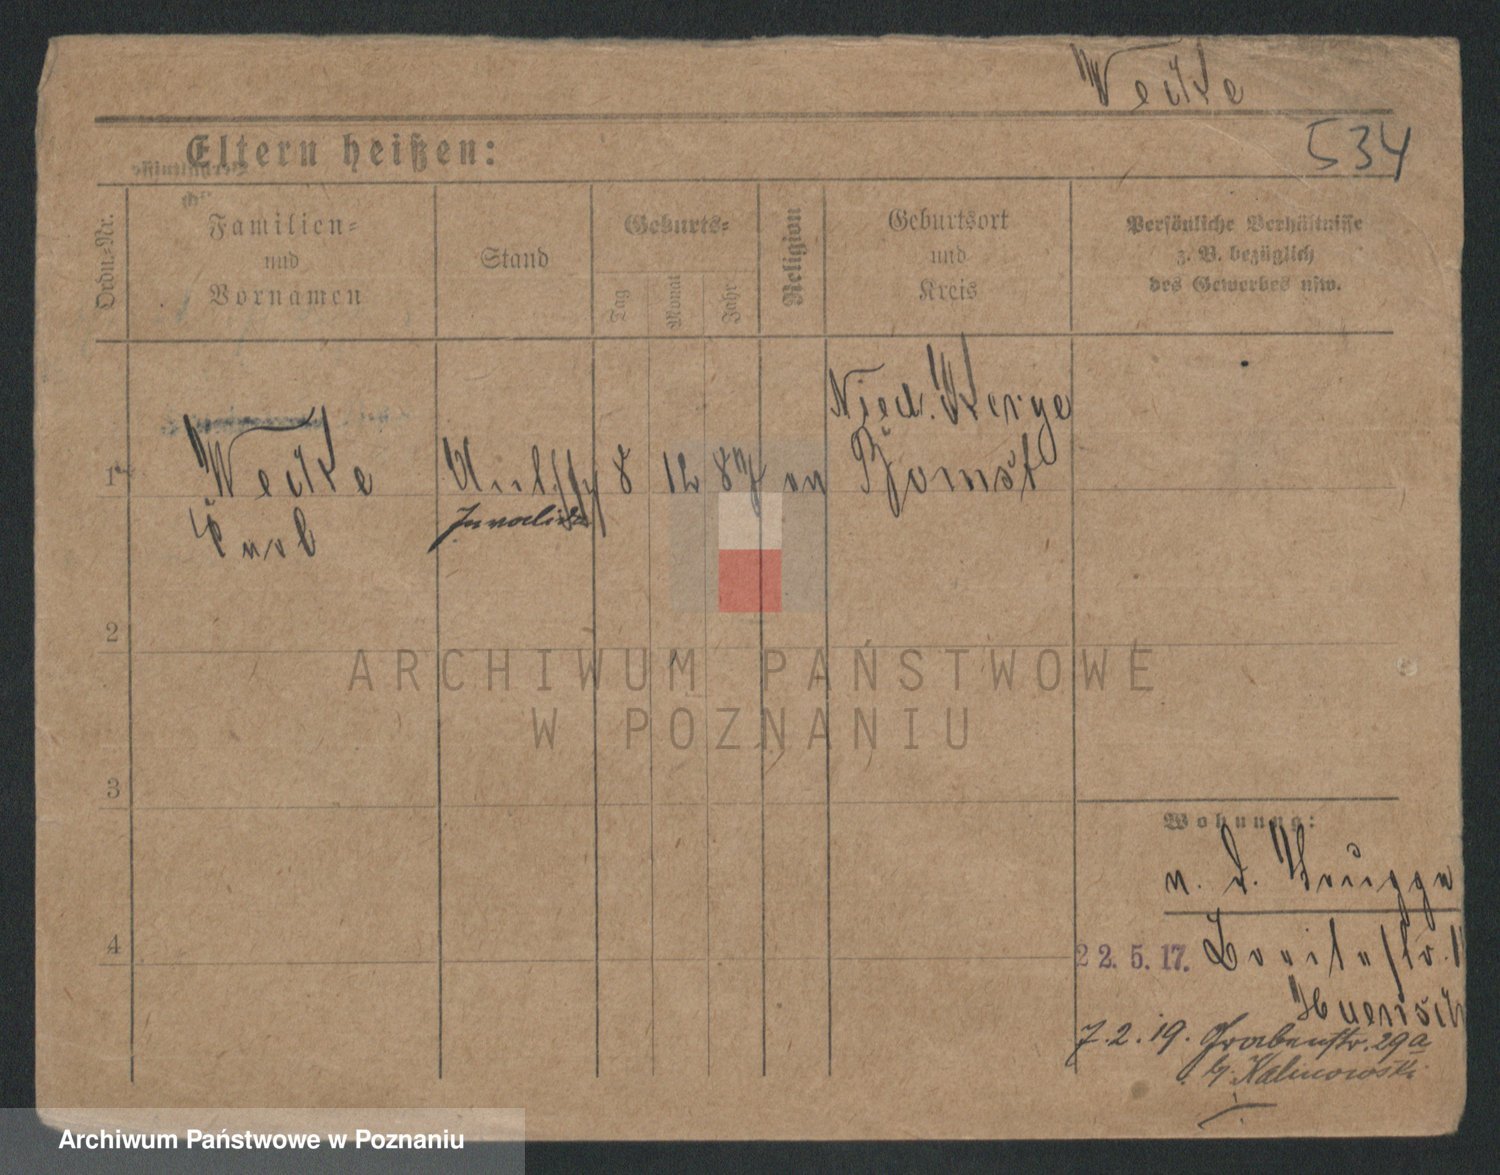 Wecke
534
Eltern heißen:
Ordn.-Nr.
Familien-
und
Vornamen
Stand
Geburts-
Tag
Monat
Jahr
Religion
Geburtsort
und
Kreis
Persönliche Verhältnisse
z. B. bezüglich
des Gewerbes usw.
1
Wecke
8 12 87
Nied.
Bomst
Invalide
2
3
4
ARCHIWUM PAŃSTWOWE
W POZNANIU
Wohnung:
22. 5. 17.
7. 2. 19. Grabenstr. 29a
b/ Kalinowski
Archiwum Państwowe w Poznaniu